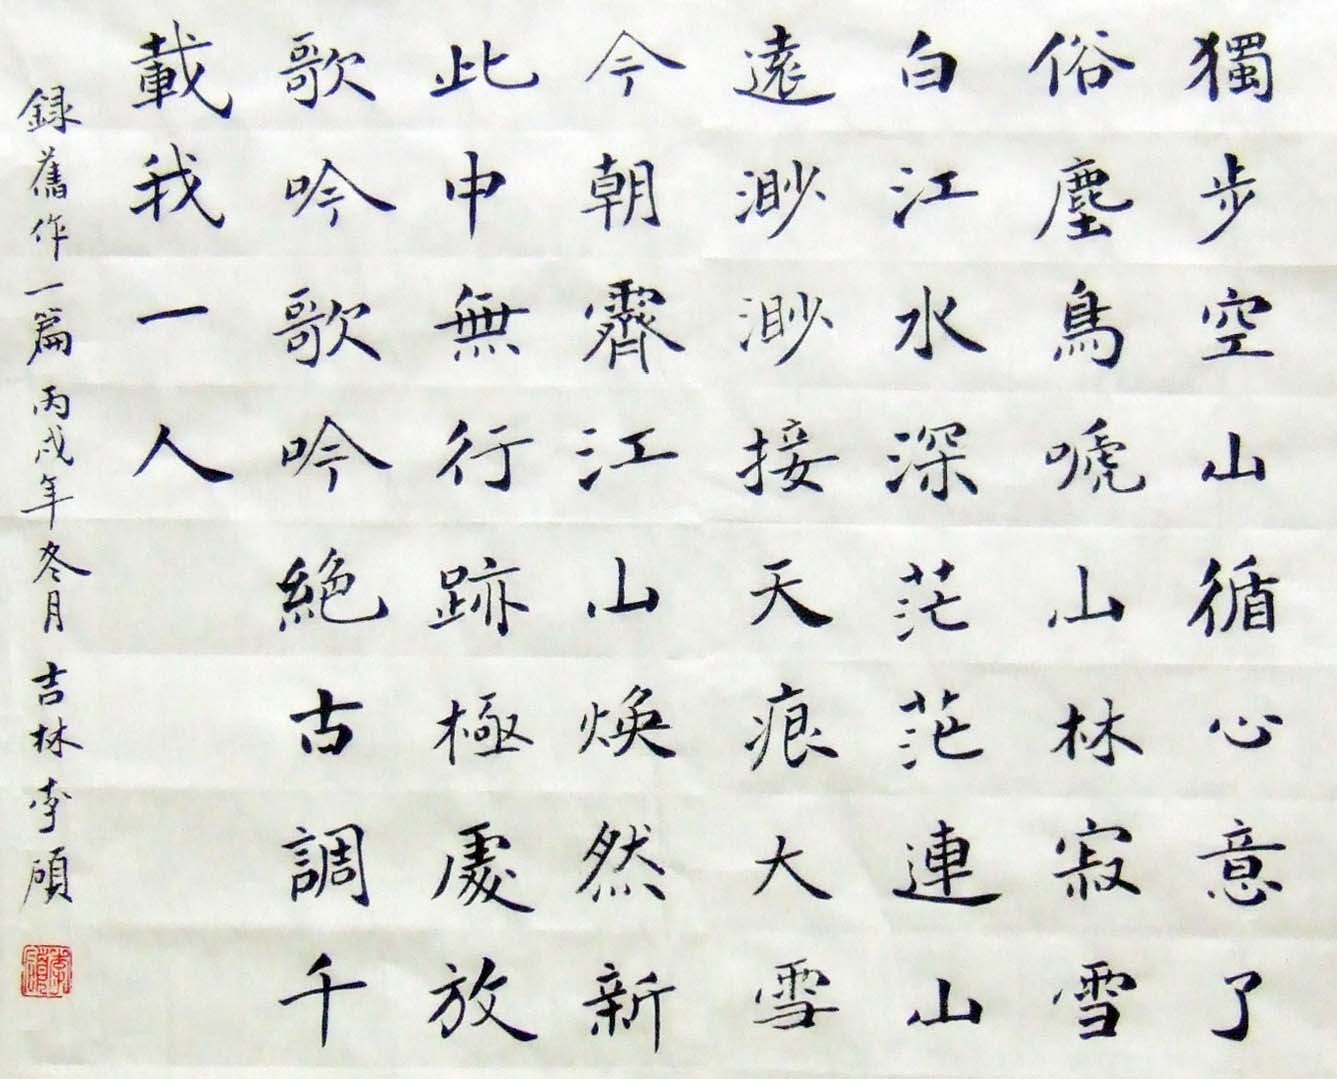 獨步空山循心意了
俗塵鳥唬山林寂雪
白江水深茫茫連山
遠渺渺接天痕大雪
今朝霽江山煥然新
此中無行跡極處放
歌吟歌吟絕古調千
載我一人
録舊作一篇丙戌年冬月吉林李碩